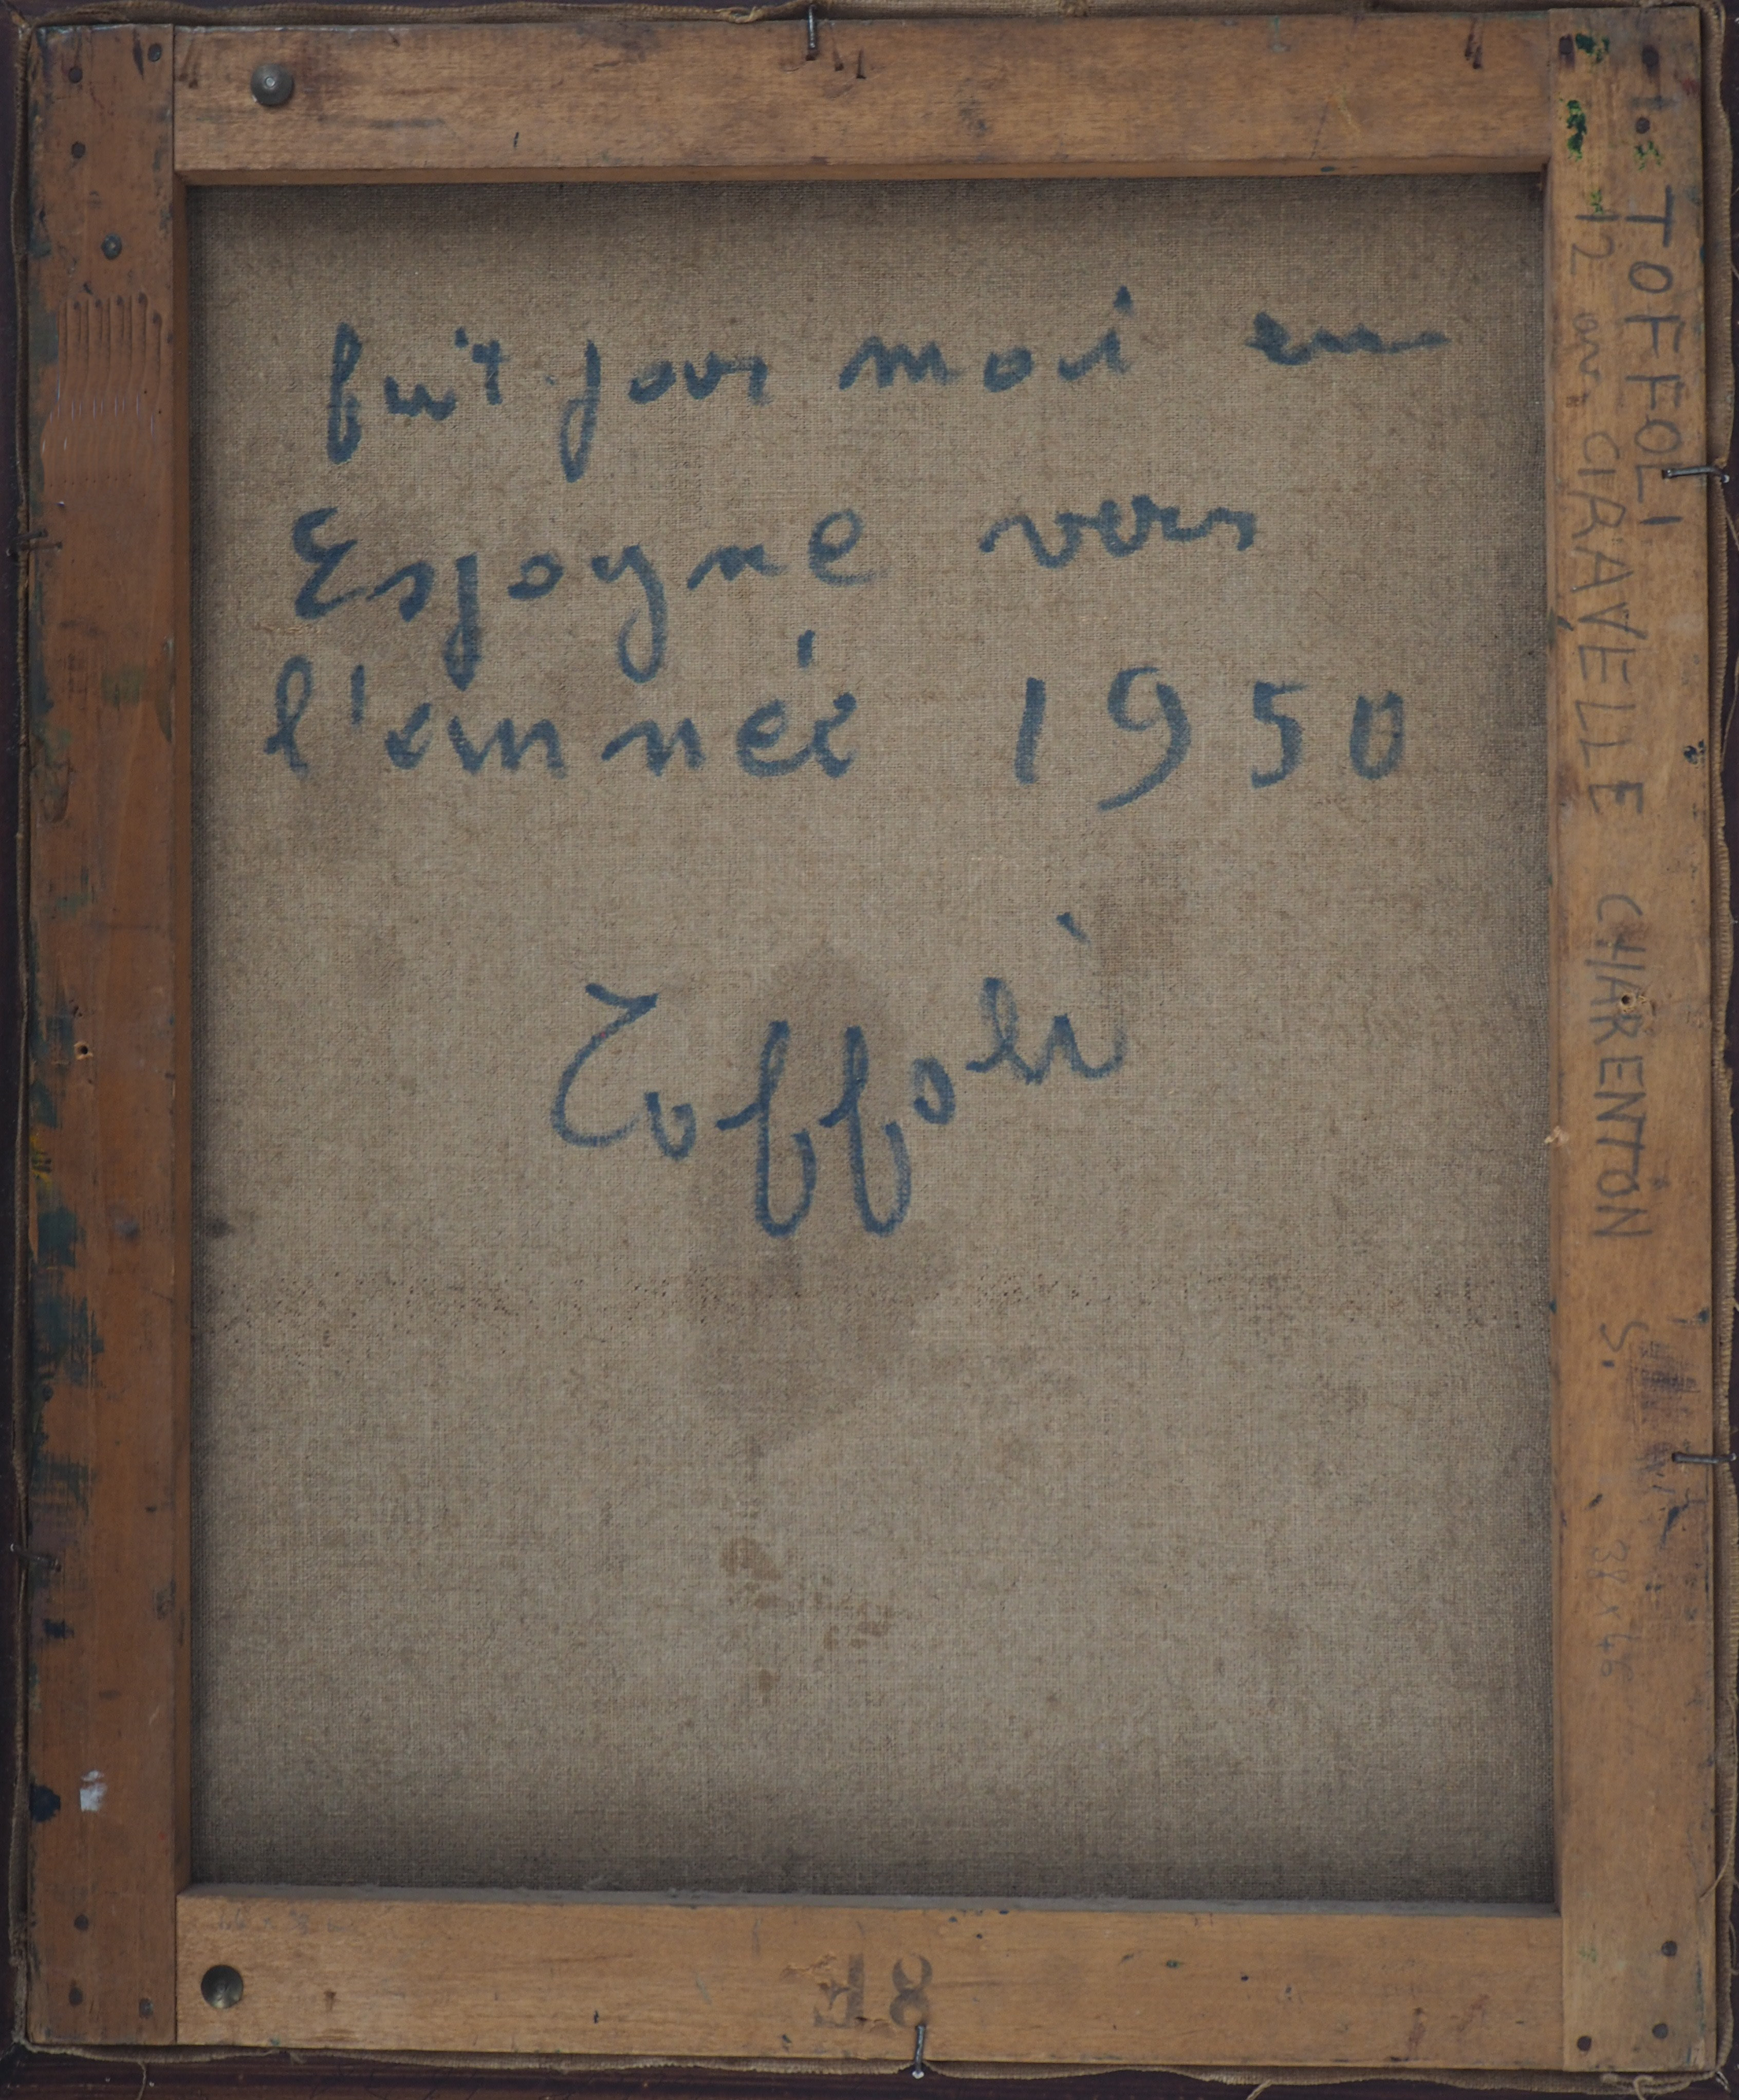 fait par moi en
Espagne vers
l'année 1950
Toffoli
TOFFOLI
12 CRAVELLE CHARENTON S.
38 x 46
8E